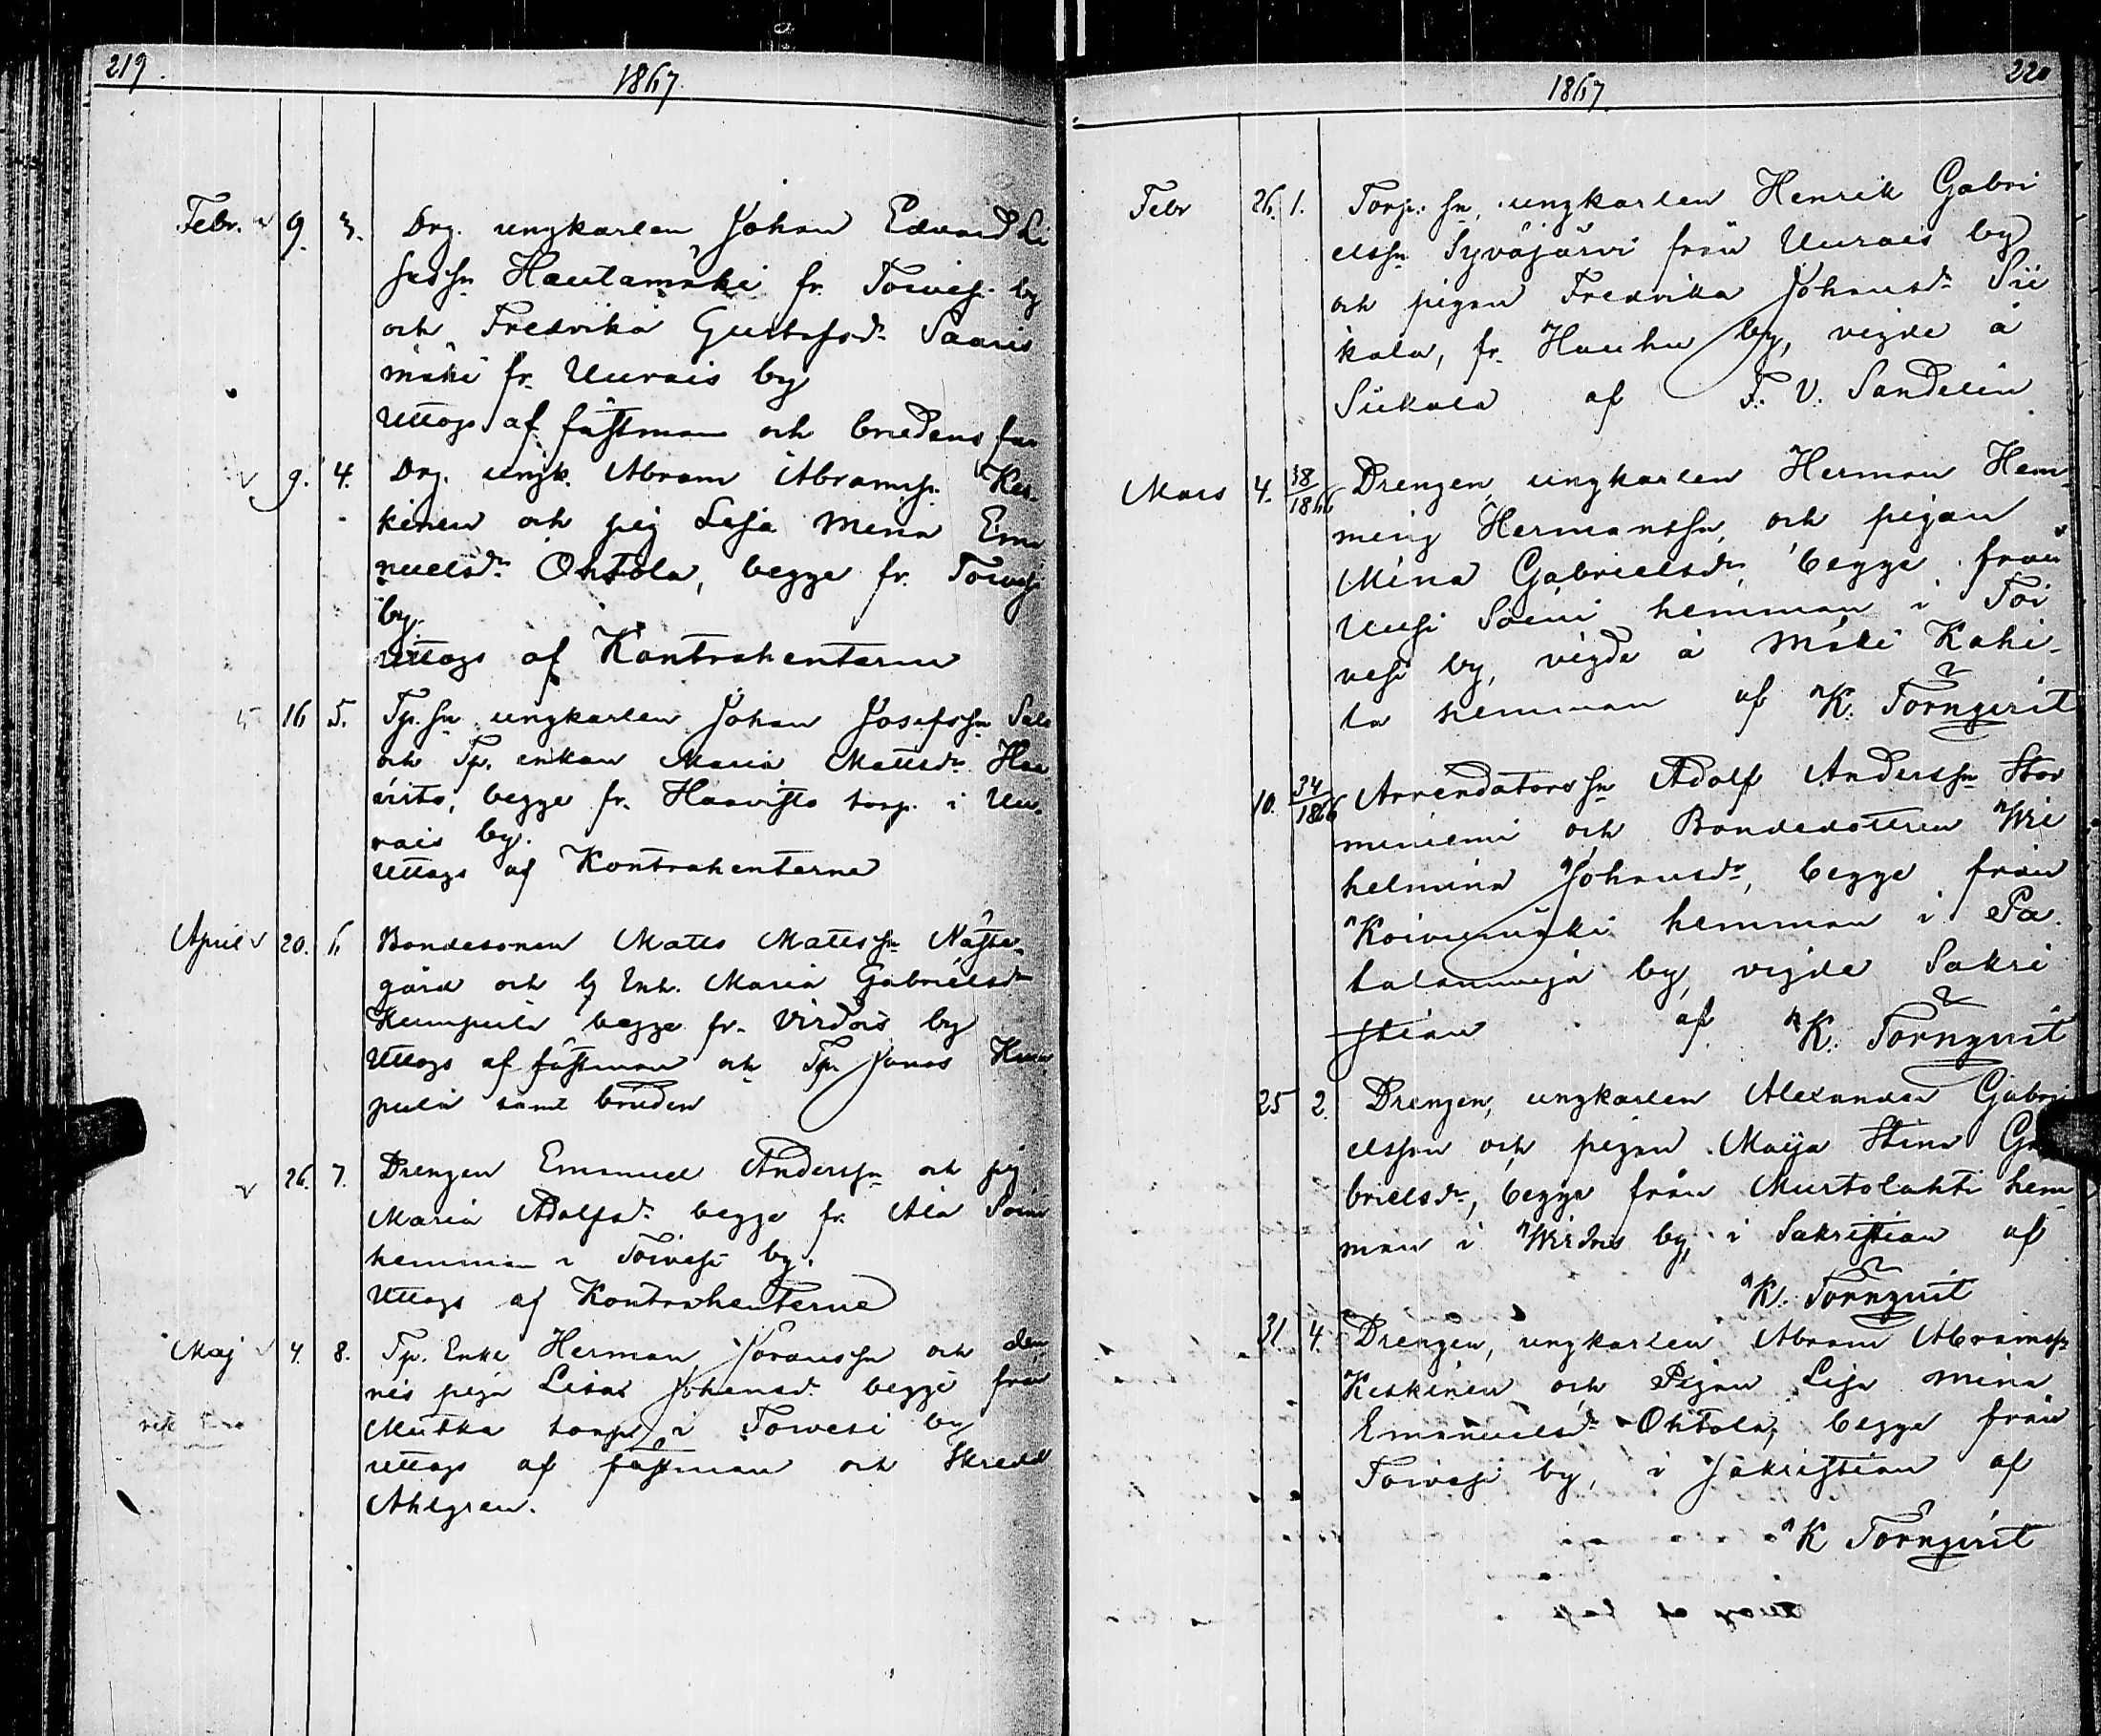 219.
1867.
Febr. 9. 3. Drg. ungkarlen Johan Edvard Li
sasSn Hautamäki fr. Toivesi by
och Fredrika Gustafsdr Saaris
mäki fr. Uurais by
Uttogs af fästman och brudens far
9. 4. Drg. ungk. Abram Abramss. Kes-
kinen och pig Lisa Mina Ema
nuelsdr Ohtola, begge fr. Toivesi
by.
Uttogs af Kontrahenterne
16 5. Tp.Sn ungkarlen Johan JosefsSn Salo
och Tp. enkan Maria Mattsdr Haa
visto, begge fr. Haavisto torp. i Uu-
rais by.
Uttogs af Kontrahenterne
April 20. 6. Bondesonen Matts MattsSn Näste-
gård och Maria Gabrielsdr
Kumpula begge fr. Virdois by
Uttogs af fästman och Tp. Jonas Kum
pula samt bruden
26. 7. Drengen Emanuel AndersSn och pig
Maria Adolfsdr begge fr. Ala Soini
hemman i Toivesi by.
Uttogs af Kontrahenterne
Maj 4. 8. Tp. Enkl Herman JöransSn och den
nes piga Lisa Johansdr begge från
Mutka torp i Toivesi by
uttogs af fästman och Skredd
Ahlgren.
220
1867
Febr 26. 1. Torp. Sn, ungkarlen Henrik Gabri
elsSn Syväjärvi från Uurais by
och pigan Fredrika Johansdr Sii
kala, fr. Hauhu by, vigde å
Siikala af F. V. Sandelin
Mars 4. 38/1866 Drengen, ungkarlen Herman Hem-
ming HermansSn, och pigan
Mina Gabrielsdr, begge från
Uusi Soini hemman i Toi
vesi by, vigde å Mäki Kahi-
la hemman af K. Törnqvist
10. 34/1866 ArrendatorsSn Adolf AndersSn Stor
miniemi och Bondedottren Wil
helmina Johansdr, begge från
Koivumäki hemman i Pa
talanmaja by, vigde Sakri
stian af K. Törnqvist
25 2. Drengen, ungkarlen Alexander Gabri
elsson och pigan Maija Stina Ga
brielsdr, begge från Murtolahti hem
man i Wirdois by, i Sakristian af
K. Törnqvist
31. 4. Drengen, ungkarlen Abram AbramsSn
Keskinen och Pigan Lisa Mina
Emanuelsdr Ohtola, begge från
Toivesi by, i Sakristian af
K Törnqvist